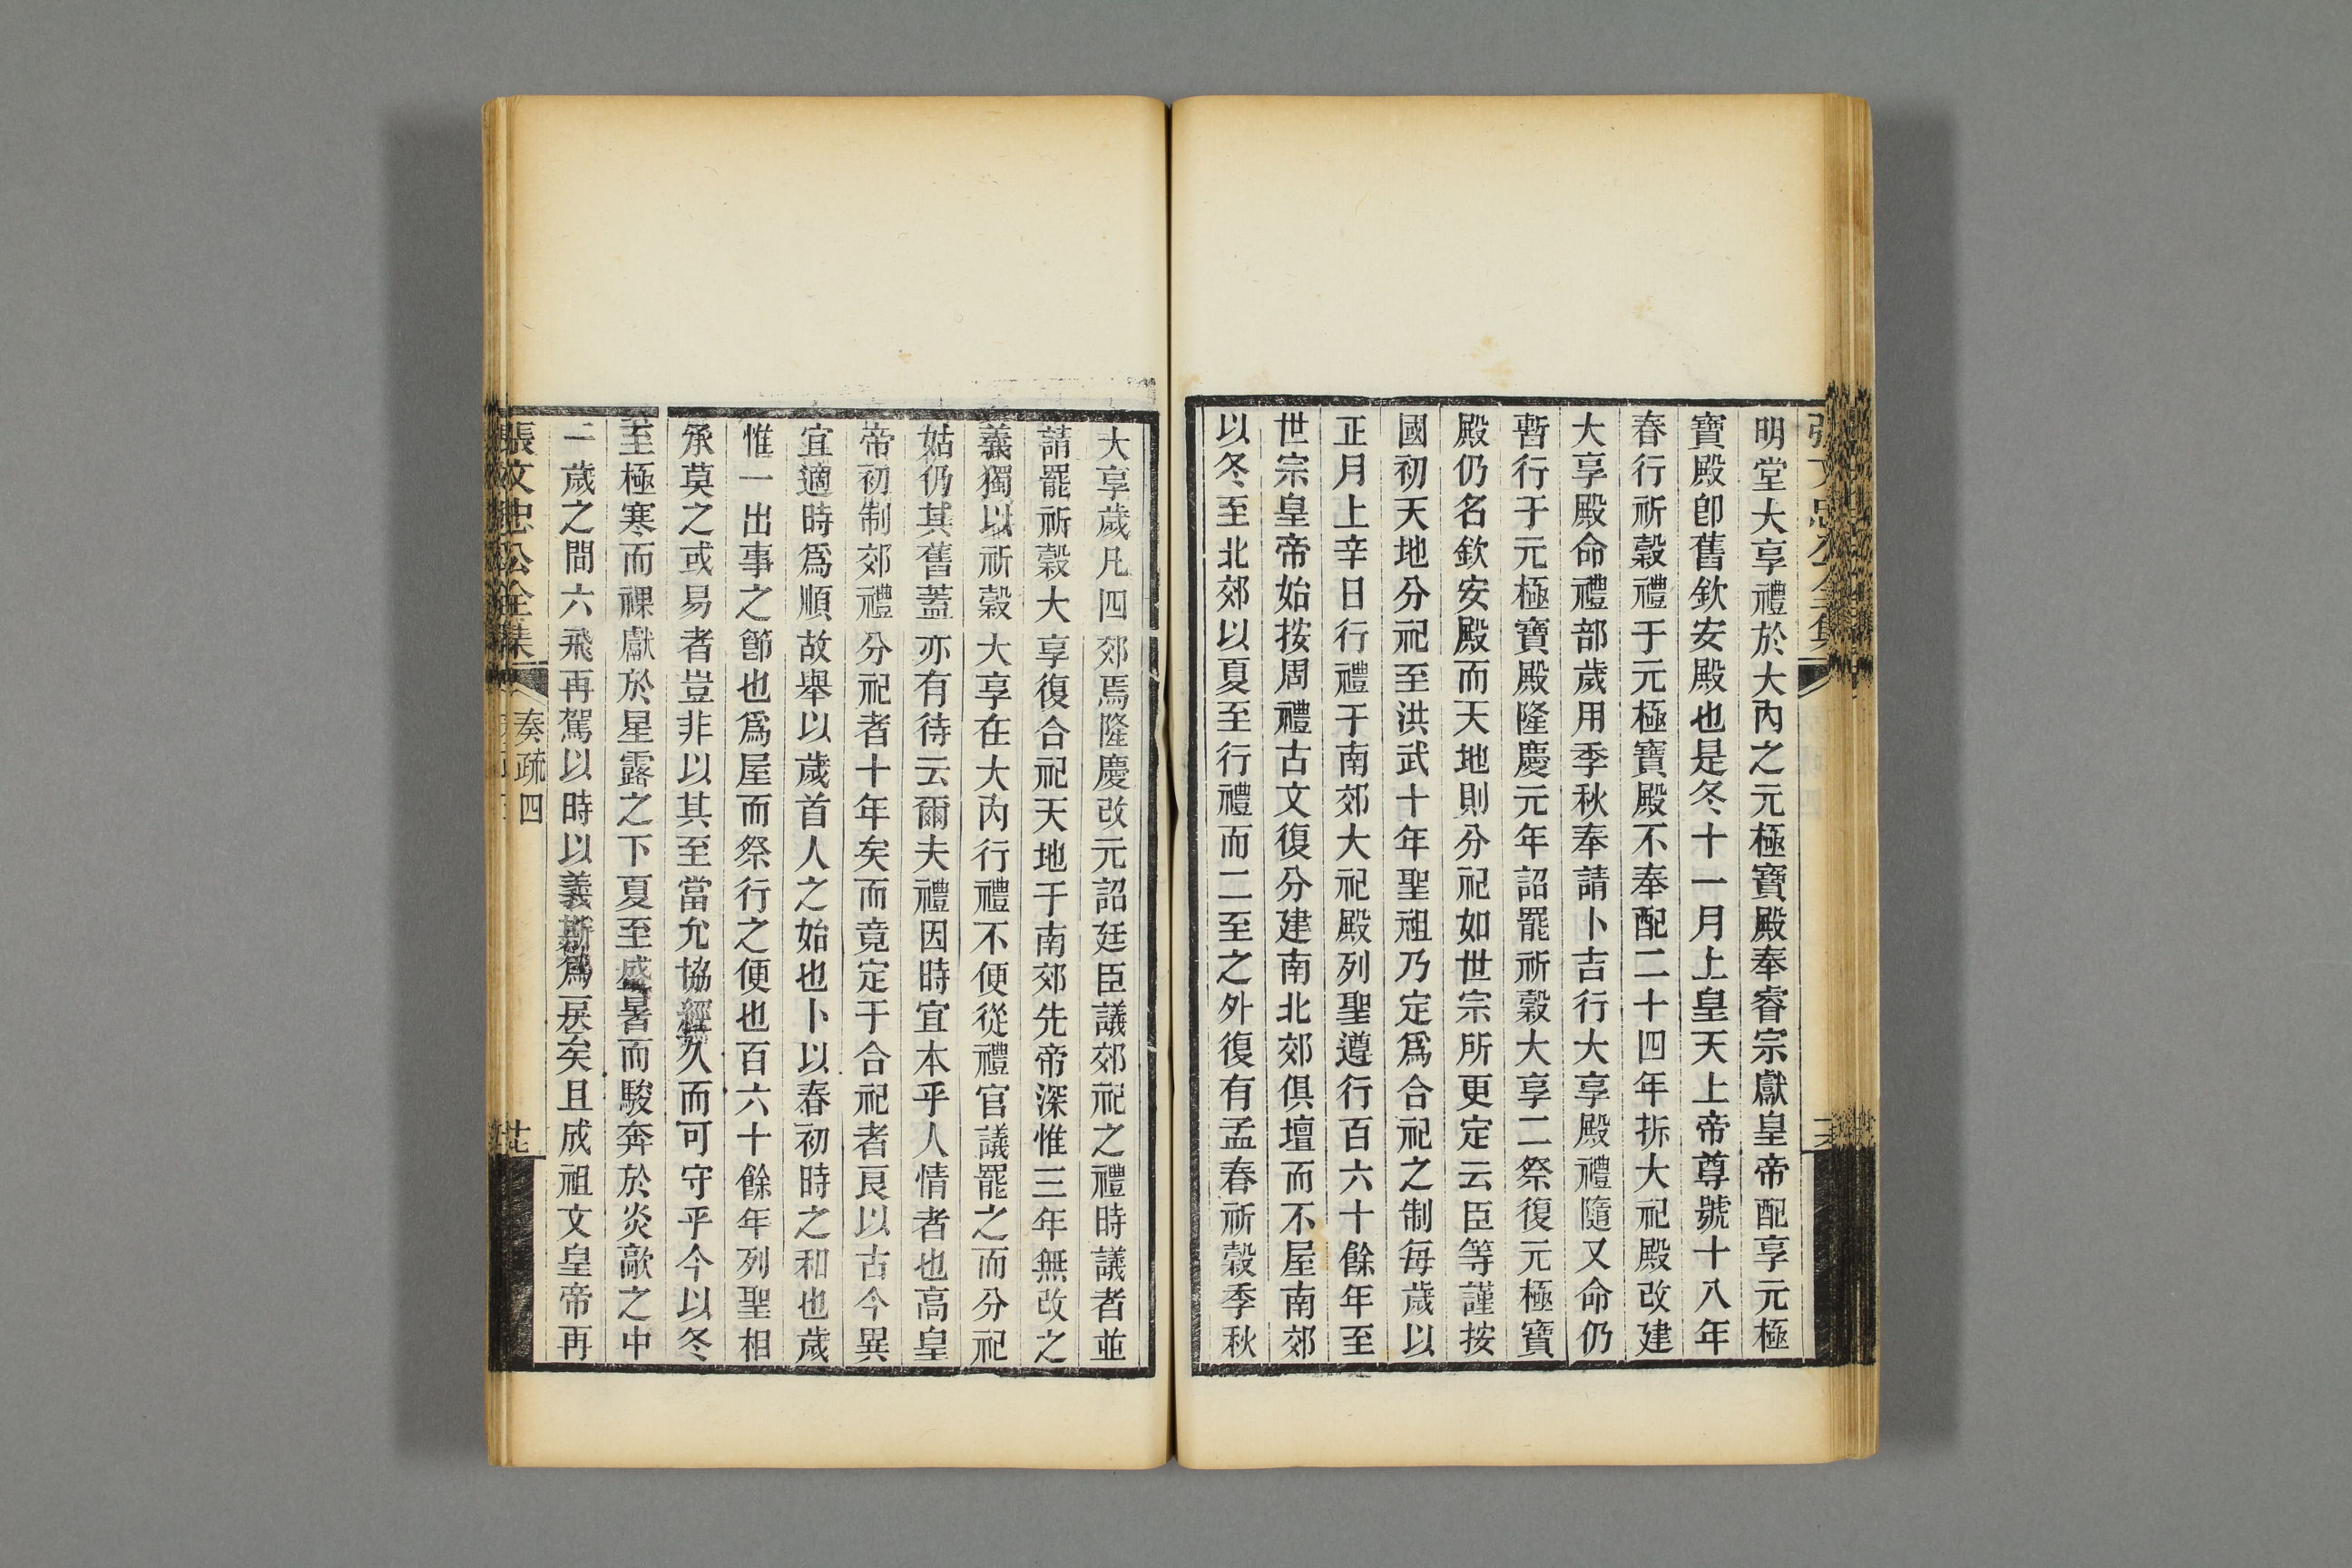 明堂大享禮於大內之元極寶殿奉睿宗獻皇帝配享元極
寶殿卽舊欽安殿也是冬十一月上皇天上帝尊號十八年
春行祈穀禮于元極寶殿不奉配二十四年拆大祀殿改建
大享殿命禮部歲用季秋奉請卜吉行大享殿禮隨又命仍
暫行于元極寶殿隆慶元年詔罷祈穀大享二祭復元極寶
殿仍名欽安殿而天地則分祀如世宗所更定云臣等謹按
國初天地分祀至洪武十年聖祖乃定爲合祀之制每歲以
正月上辛日行禮于南郊大祀殿列聖遵行百六十餘年至
世宗皇帝始按周禮古文復分建南北郊俱壇而不屋南郊
以冬至北郊以夏至行禮而二至之外復有孟春祈穀季秋
大享歲凡四郊焉隆慶改元詔廷臣議郊祀之禮時議者並
請罷祈穀大享復合祀天地于南郊先帝深惟三年無改之
義獨以祈穀大享在大內行禮不便從禮官議罷之而分祀
姑仍其舊蓋亦有待云爾夫禮因時宜本乎人情者也高皇
帝初制郊禮分祀者十年矣而竟定于合祀者良以古今異
宜適時爲順故舉以歲首人之始也卜以春初時之和也歲
惟一出事之節也爲屋而祭行之便也百六十餘年列聖相
承莫之或易者豈非以其至當允協經久而可守乎今以冬
至極寒而祼獻於星露之下夏至盛暑而駿奔於炎歊之中
一歲之間六飛再駕以時以義斯爲戾矣且成祖文皇帝再
張文忠公全集
奏疏四
廿七